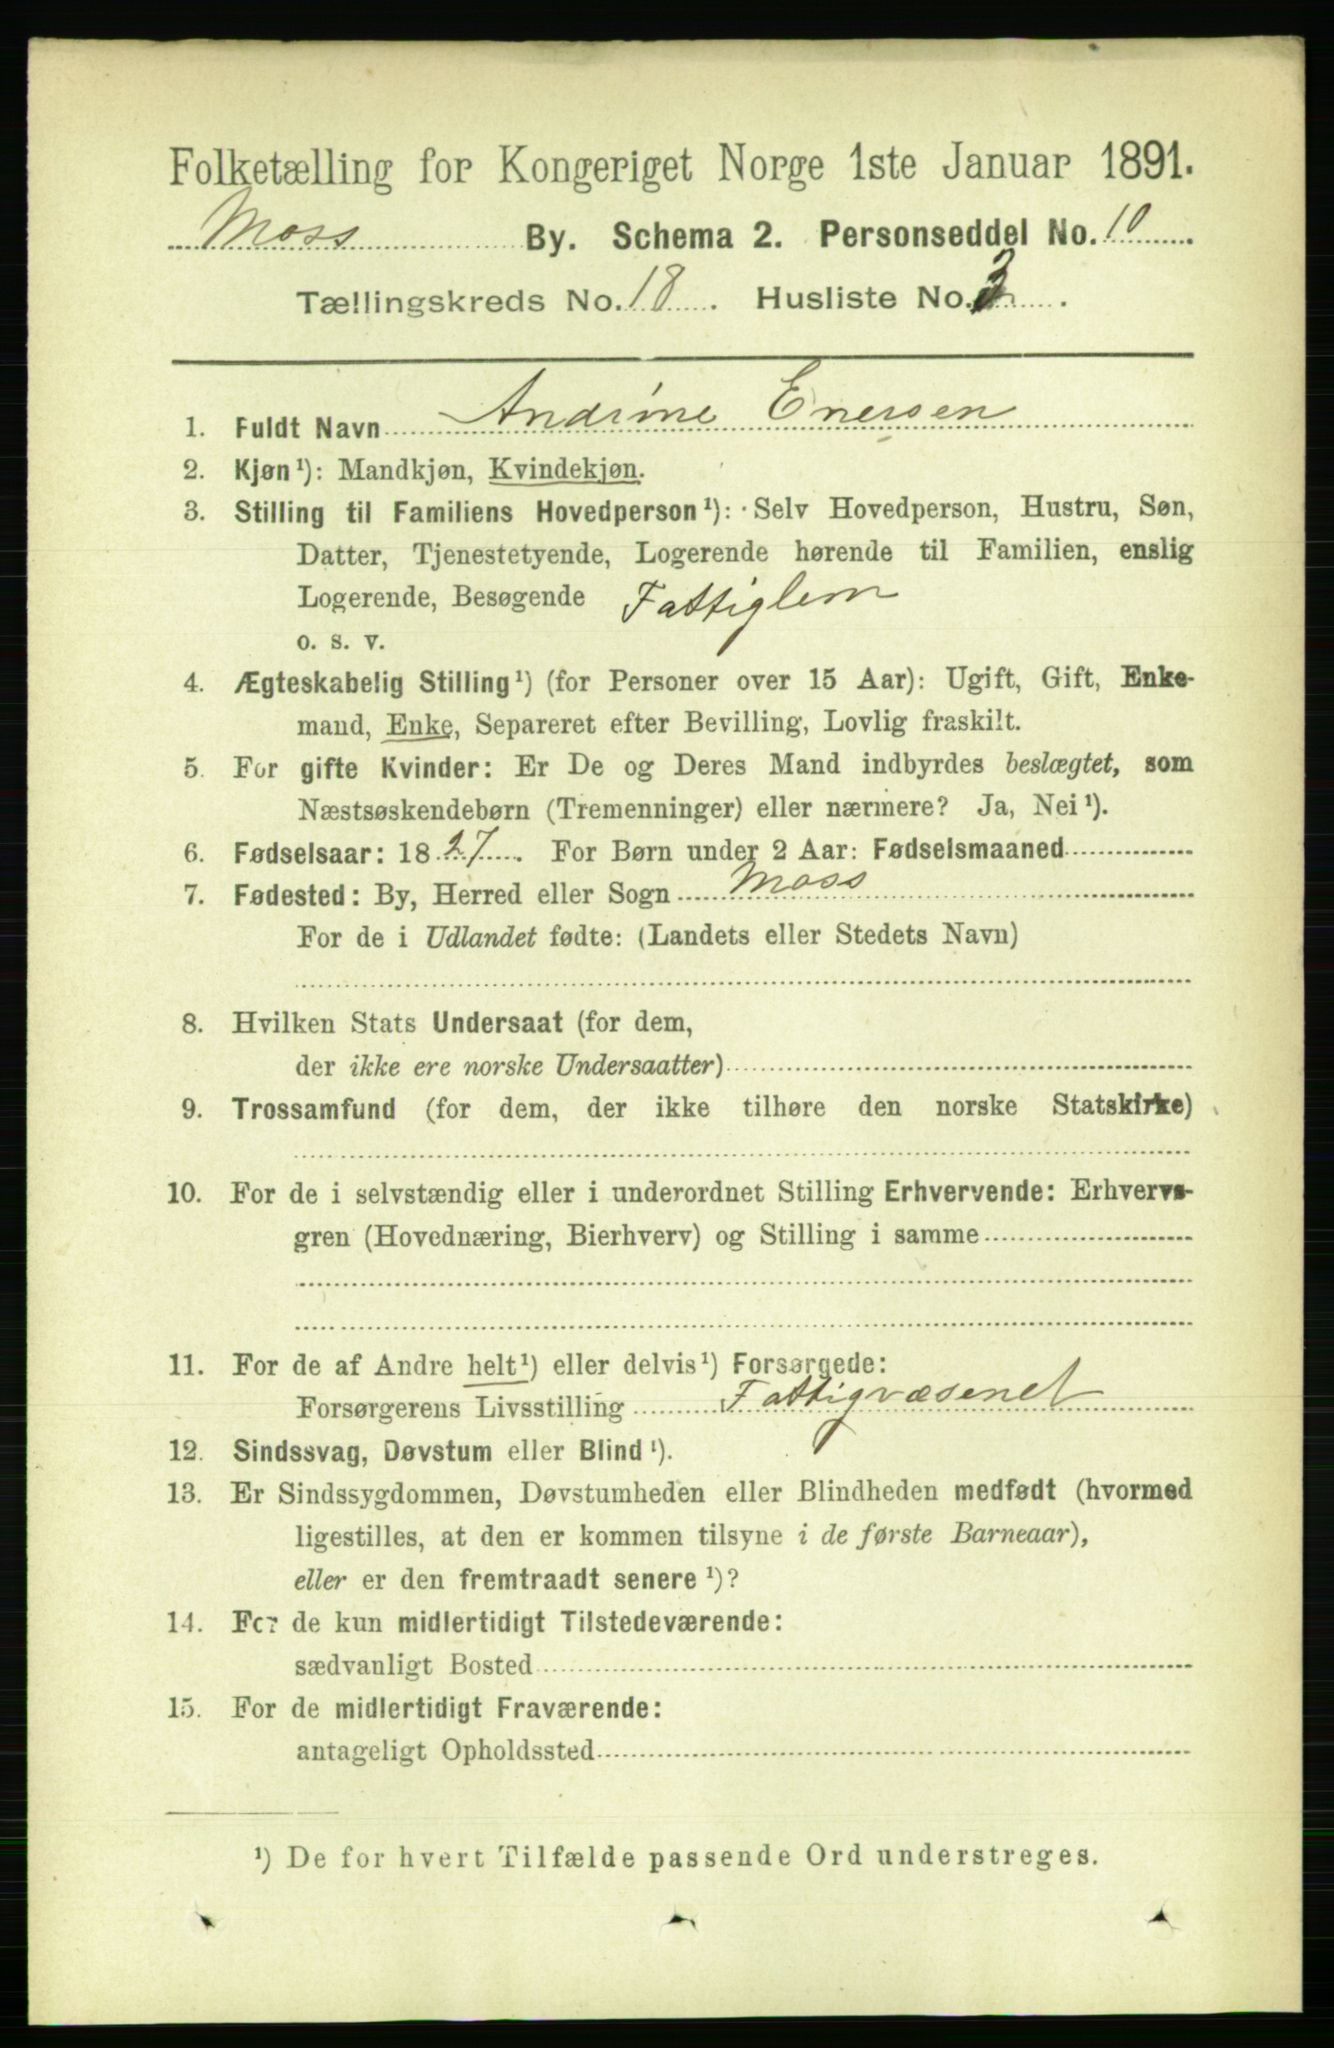 Folketælling for Kongeriget Norge 1ste Januar 1891.
Moss By. Schema 2. Personseddel No. 10
Tællingskreds No. 18. Husliste No. 3.
1. Fuldt Navn Andrine Enersen
2. Kjøn¹): Mandkjøn, Kvindekjøn.
3. Stilling til Familiens Hovedperson¹): Selv Hovedperson, Hustru, Søn,
Datter, Tjenestetyende, Logerende hørende til Familien, enslig
Logerende, Besøgende Fattiglem
o. s. v.
4. Ægteskabelig Stilling¹) (for Personer over 15 Aar): Ugift, Gift, Enke-
mand, Enke, Separeret efter Bevilling, Lovlig fraskilt.
5. For gifte Kvinder: Er De og Deres Mand indbyrdes beslægtet, som
Næstsøskendebørn (Tremenninger) eller nærmere? Ja, Nei¹).
6. Fødselsaar: 1827. For Børn under 2 Aar: Fødselsmaaned
7. Fødested: By, Herred eller Sogn Moss
For de i Udlandet fødte: (Landets eller Stedets Navn)
8. Hvilken Stats Undersaat (for dem,
der ikke ere norske Undersaatter)
9. Trossamfund (for dem, der ikke tilhøre den norske Statskirke)
10. For de i selvstændig eller i underordnet Stilling Erhvervende: Erhvervs-
gren (Hovednæring, Bierhverv) og Stilling i samme
11. For de af Andre helt¹) eller delvis¹) Forsørgede:
Forsørgerens Livsstilling Fattigvæsenet
12. Sindssvag, Døvstum eller Blind¹).
13. Er Sindssygdommen, Døvstumheden eller Blindheden medfødt (hvormed
ligestilles, at den er kommen tilsyne i de første Barneaar),
eller er den fremtraadt senere¹)?
14. For de kun midlertidigt Tilstedeværende:
sædvanligt Bosted
15. For de midlertidigt Fraværende:
antageligt Opholdssted
¹) De for hvert Tilfælde passende Ord understreges.